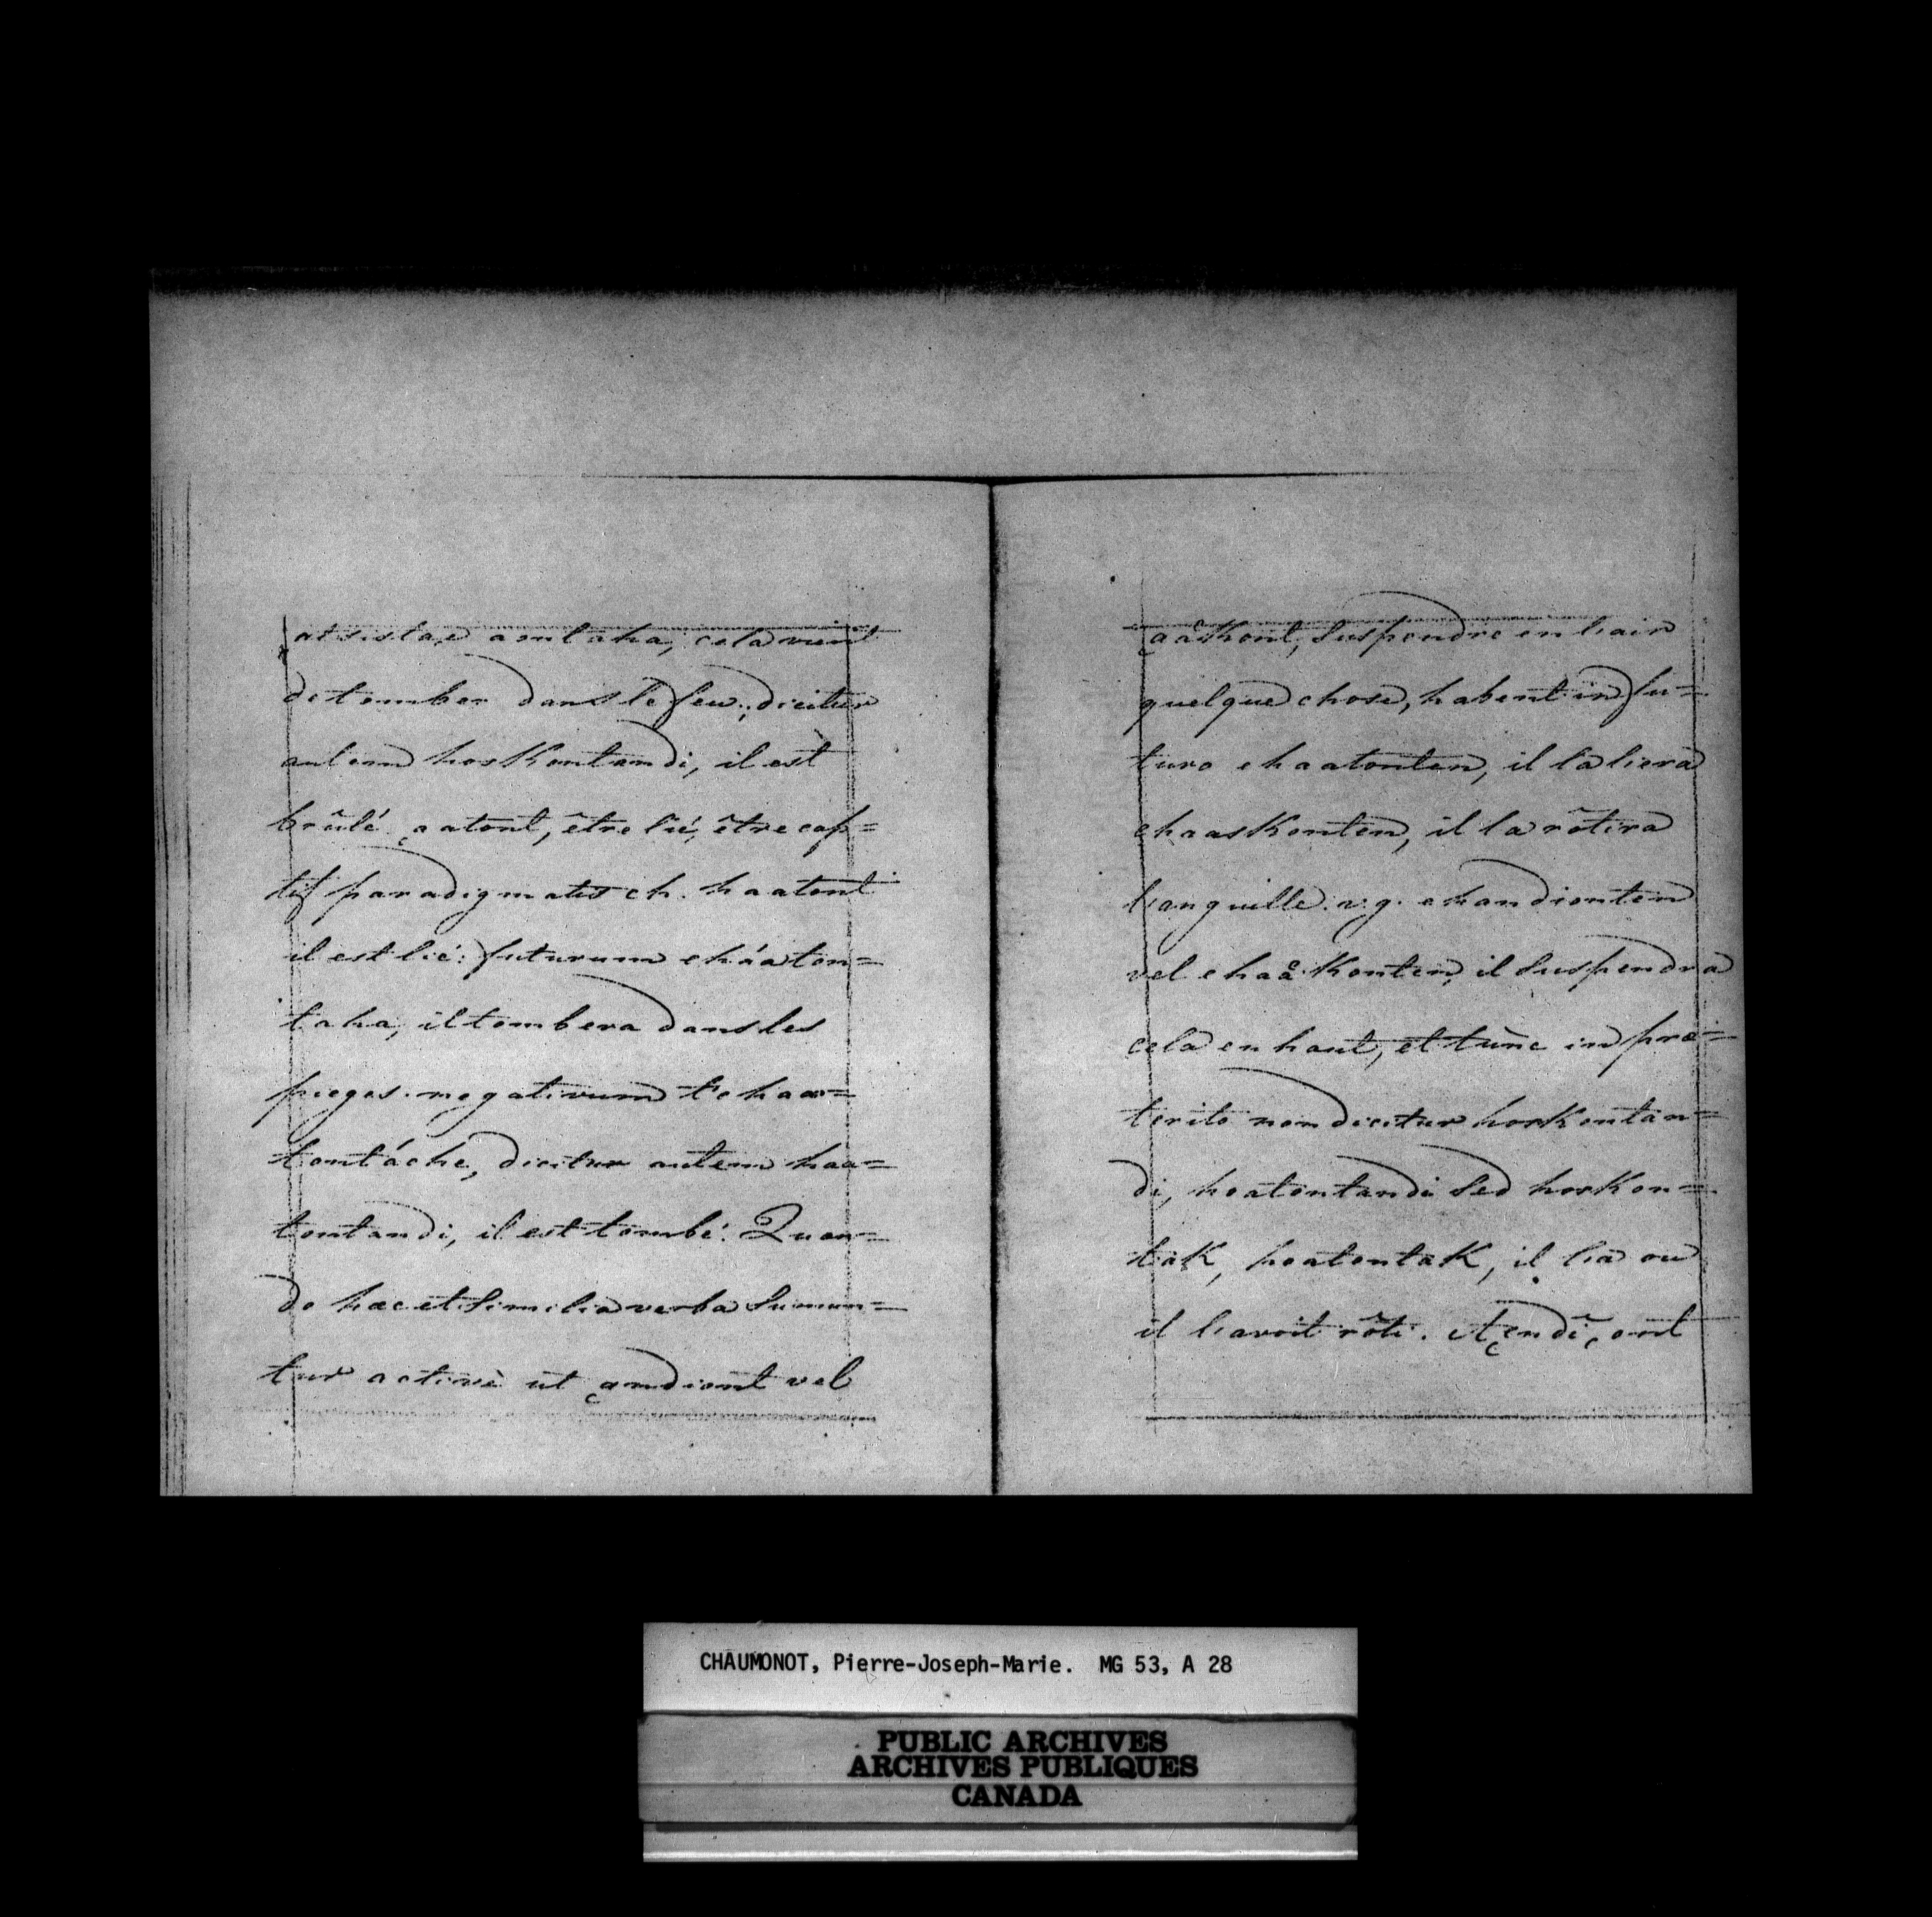 atsistaę aontaha, cela vient
de tomber dans le feu; dicitur
autem hoskontandi, il est
brûlé. ąatont, être lié, être cap=
tif paradigmatis ch. haatont
il est lié: futurum eháaton=
taha, il tombera dans les
pieges. negativum te haa=
tontáche, dicitur autem haa=
tontandi, il est tombé. Quan=
do hæc et similia verba sumun=
tur activè ut ąandiont vel
ąaåkont, suspendre en l'air
quelque chose, habent in fu=
turo ehaatonten, il la liera
ehaaskonten, il la rôtira
l'anguille. v.g. ehandionten
vel ehaåkonten, il suspendra
cela en haut, et tunc in præ=
terito non dicitur hoskontan=
di, hoatontandi sed hoskon=
tak, hoatontak, il l'a ou
il l'avoit rôti. Aęndi, ont
CHAUMONOT, Pierre-Joseph-Marie. MG 53, A 28
PUBLIC ARCHIVES
ARCHIVES PUBLIQUES
CANADA